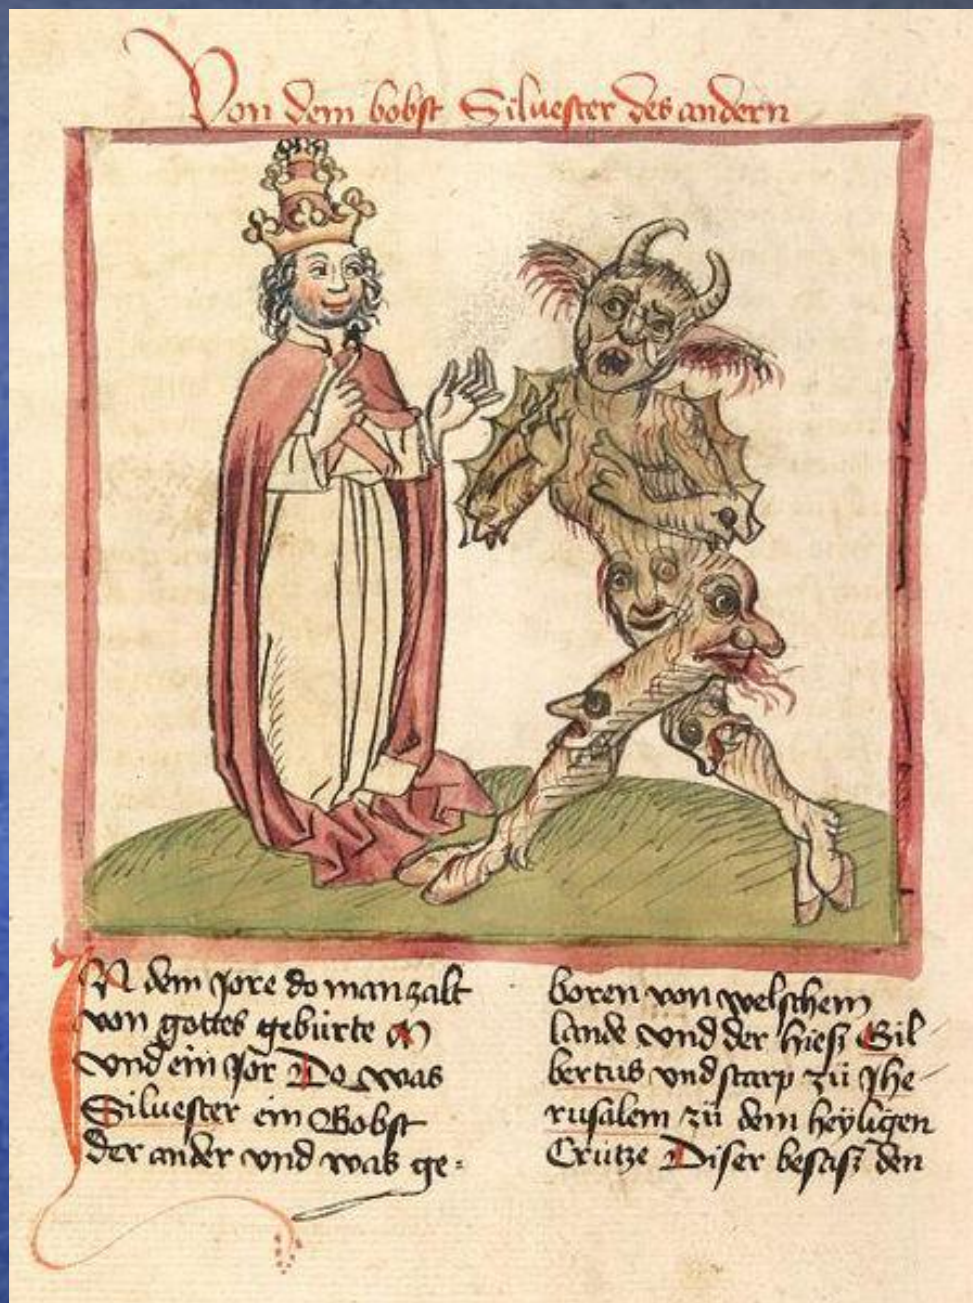 Von dem bobst Siluester des andern
In dem Jore do man zalt
von gottes gebürte M
vnd ein Jor Do was
Siluester ein Bobst
der ander vnd was ge=
boren von welschem
lande vnd der hiesz Gil
bertus vnd starp zü Jhe
rusalem zü dem heyligen
Crütze Diser besasz den